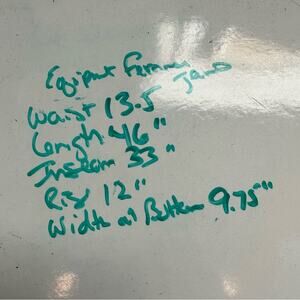 Equipmt Femme
Jeans
Waist 13.5
Length 46"
Inseam 33"
Rise 12"
Width at Bottom 9.75"